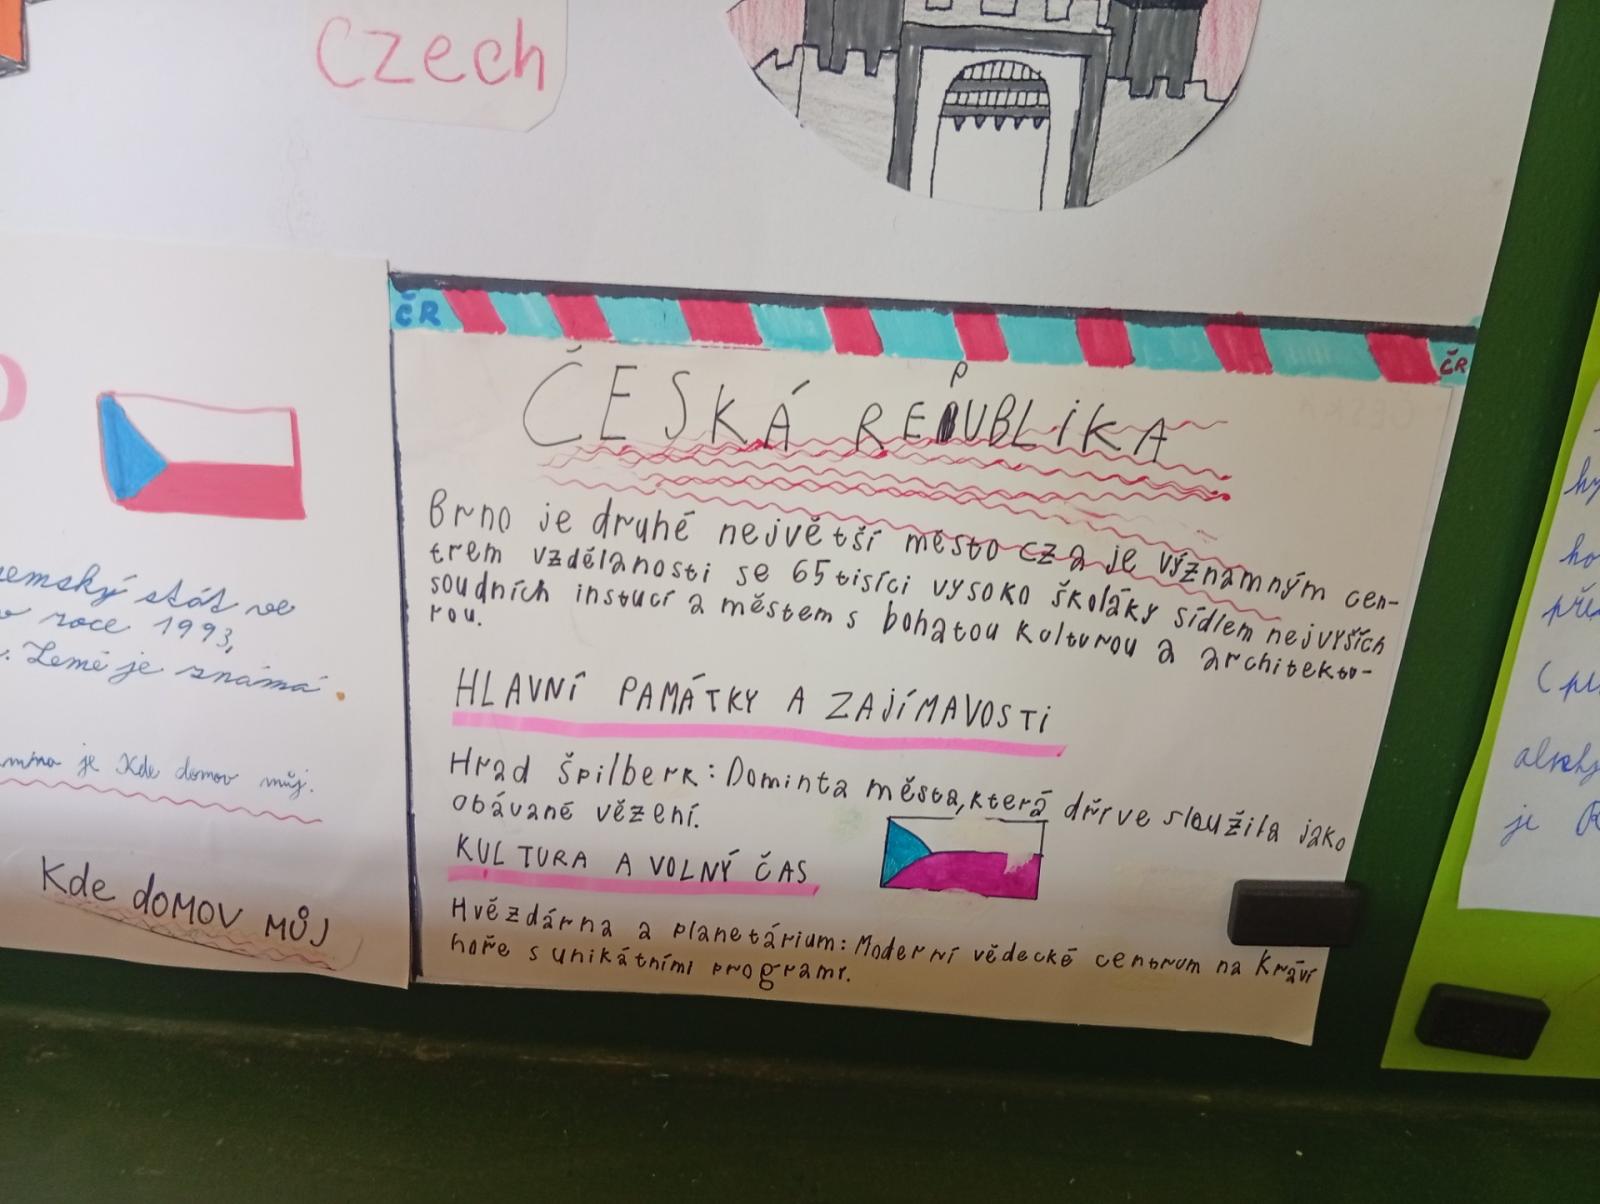 Czech
ČR
ČR
ČESKÁ REPUBLIKA
Brno je druhé největší město cz a je významným cen-
trem vzdělanosti se 65 tisíci vysoko školáky sídlem nejvyšších
soudních instucí a městem s bohatou kulturou a architekto-
rou.
HLAVNÍ PAMÁTKY A ZAJÍMAVOSTI
Hrad Špilberk: Dominta města, která dřív ve sloužila jako
obávané vězení.
KULTURA A VOLNÝ ČAS
Hvězdárna a planetárium: Moderní vědecké centrum na Kraví
hoře s unikátními programi.
stát ve
roce 1993,
Země je známá.
je Kde domov můj.
Kde domov můj
je